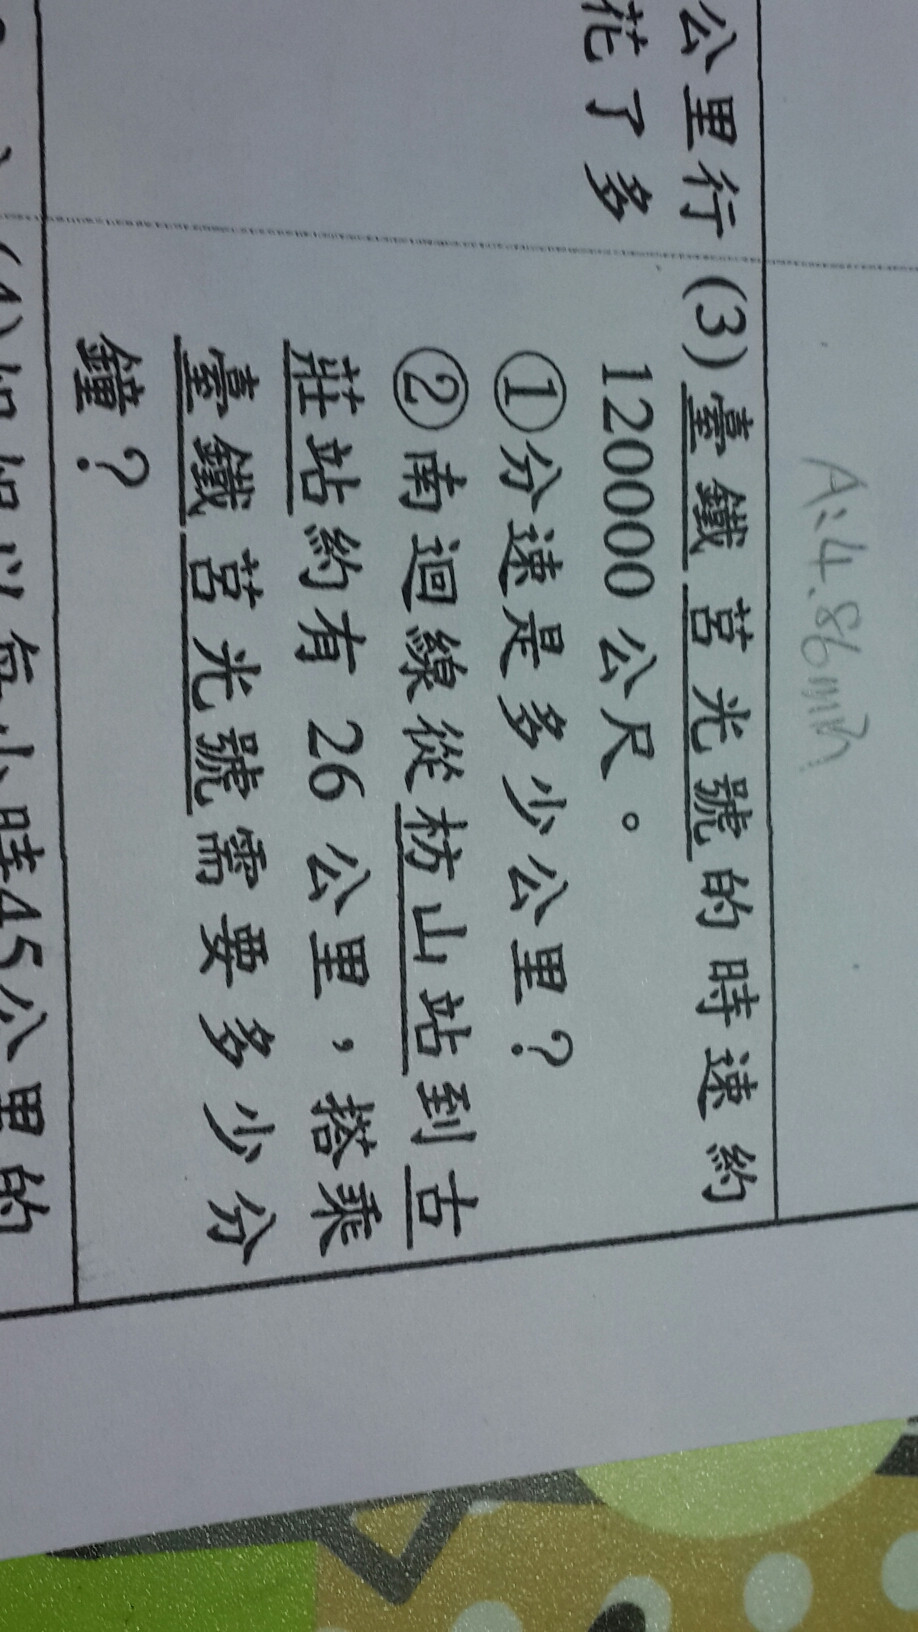 公里行
花了多
A:4.86m
(3)臺鐵莒光號的時速約
120000公尺。
①分速是多少公里?
②南迴線從枋山站到古
莊站約有26公里,搭乘
臺鐵莒光號需要多少分
鐘?
以每小時45公里的